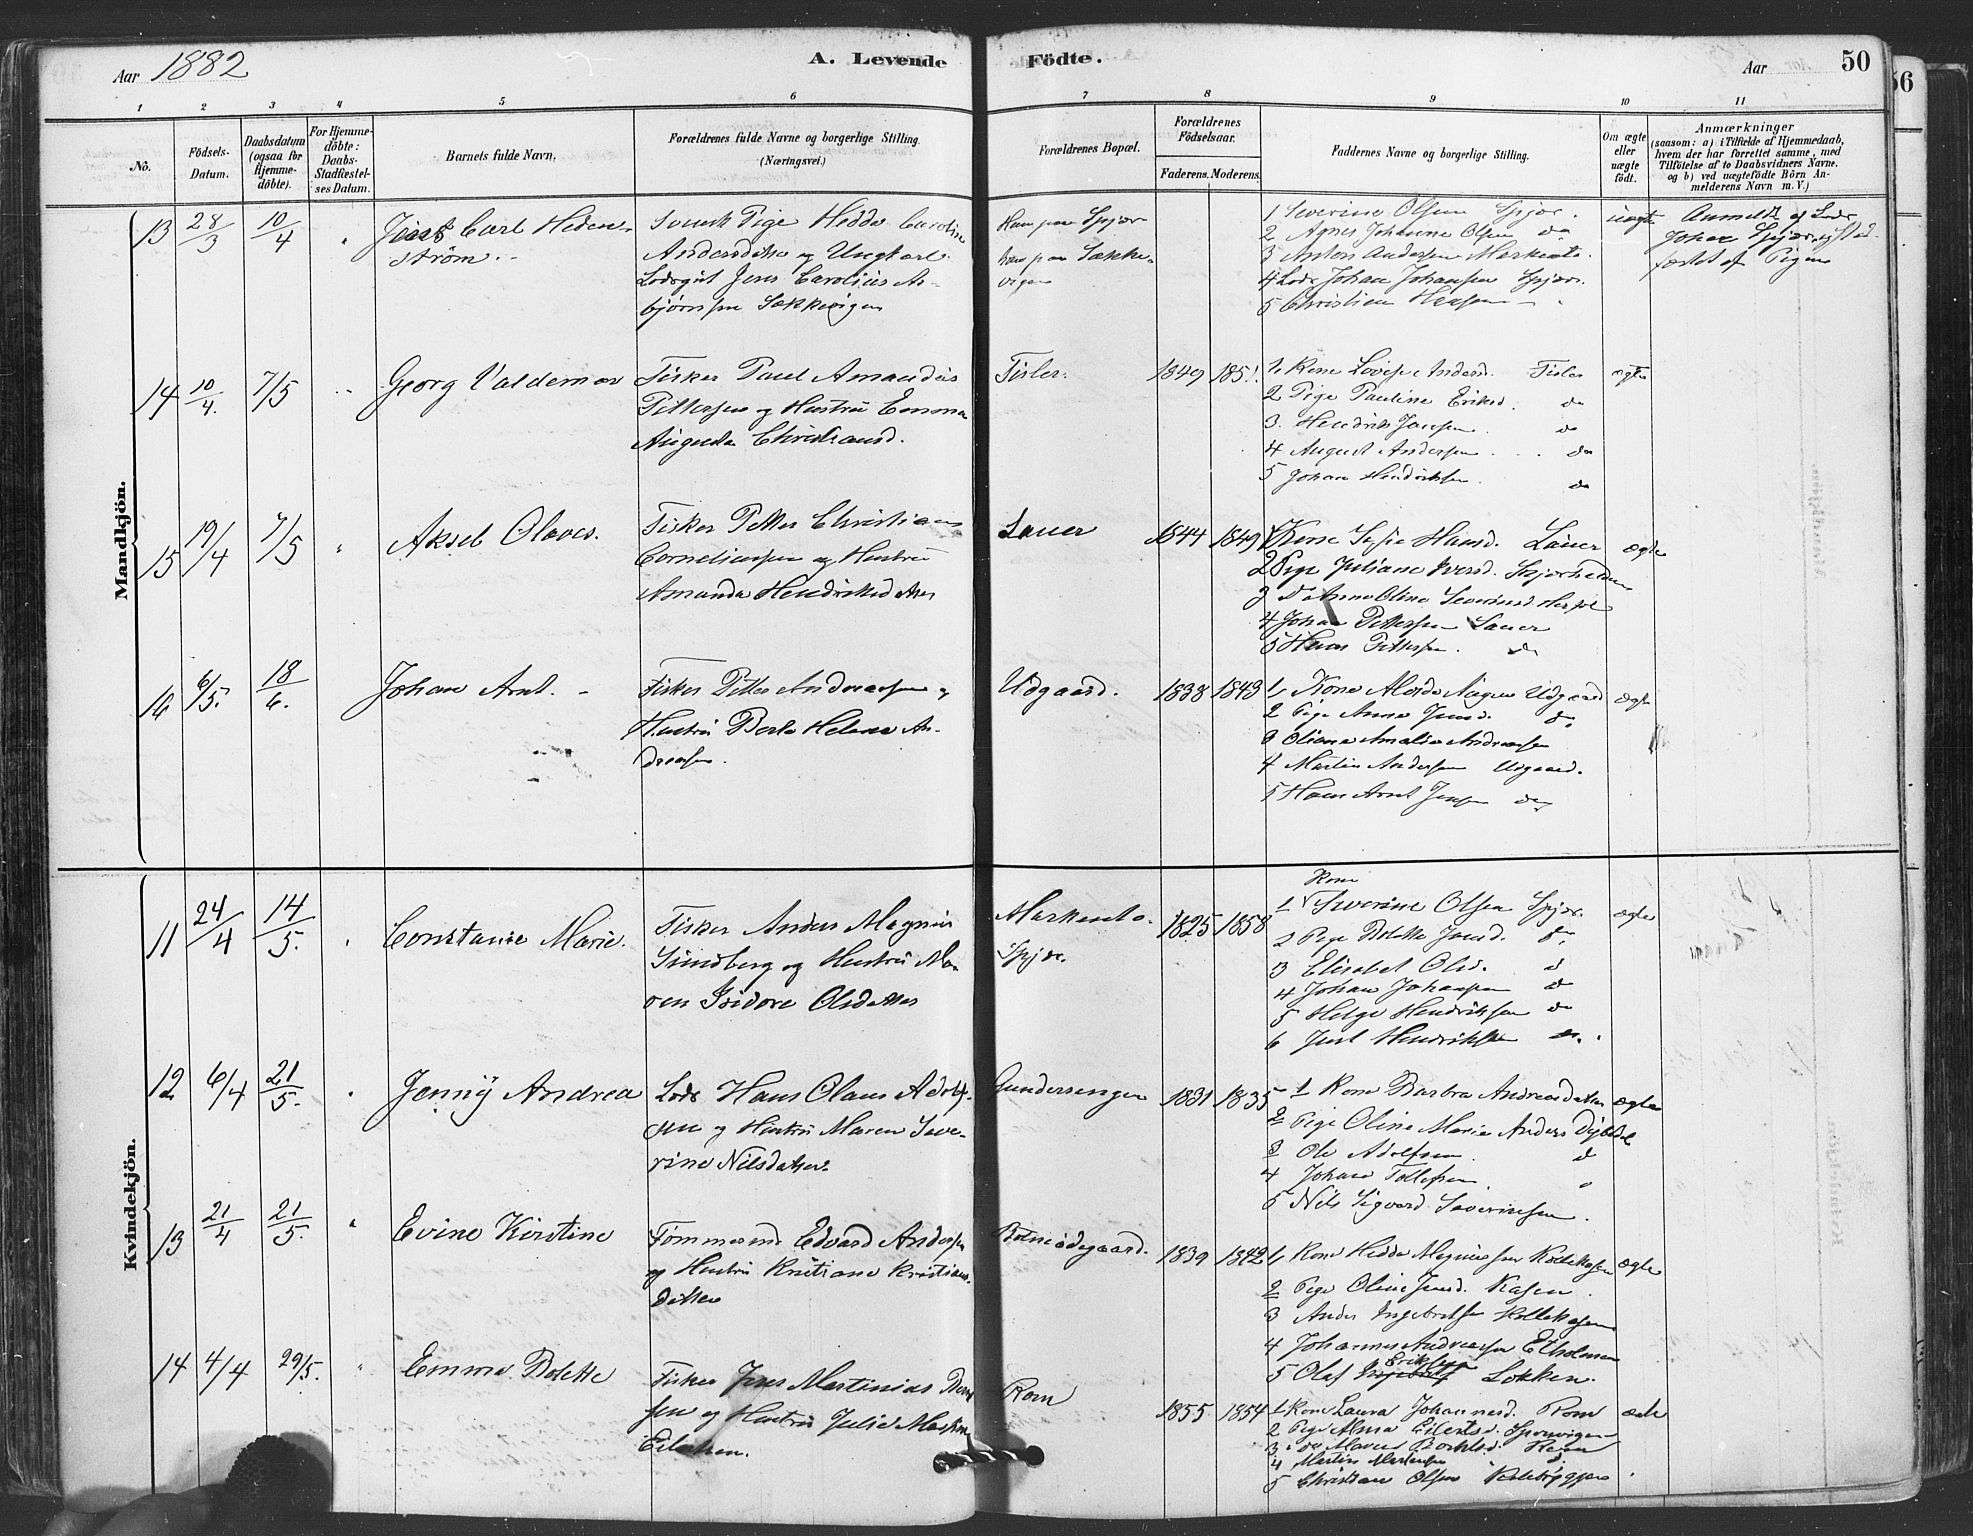 Aar 1882
A. Levende
Födte.
Aar
50
1 2 3 4 5 6 7 8 9 10 11
No.
Födsels-Datum.
Daabsdatum (ogsaa for Hjemmedöbte).
For Hjemmedöbte: Daabs-Stadfæstelses Datum.
Barnets fulde Navn.
Forældrenes fulde Navne og borgerlige Stilling.
(Næringsvei.)
Forældrenes Bopæl.
Forældrenes Födselsaar.
Faderens. Moderens.
Faddernes Navne og borgerlig Stilling.
Om ægte eller uægte födt.
Anmærkninger
(saasom: a) i Tilfælde af Hjemmedaab,
hvem der har forrettet samme, med
Tilföielse af to Daabsvidners Navne.
og b) ved uægtefödte Börn Anmelderens Navn m. V.)
Mandkjön.
13 28/3 10/4 Carl Hedenström
Pige Hedda
Andersdatter og Ungkarl
Lodsgut Jens Carolius As-
bjørnsen Sækkevigen
1 Severine Olsen Spjær.
2 Agnes Johanne Olsen do
3 Anton Andersen
4 Lods Johan Johansen Spjær.
5 Christian Hansen
uægte
Anmeldt af Lods
Johan Spjær,
af Pigen
14 10/4. 7/5 Georg Valdemar
Fisker Paul Amandus
Pettersen og Hustru Emma
Augusta Christiansd.
Tisler. 1849 185
1, Kone Lovise Andersd. Tisler ægte
2 Pige Pauline Eriksd. do
3. Hendrik Jansen. do
4 August Andersen do
5 Johan Hendriksen do
15 19/4 7/5 Aksel Olaves.
Fisker Petter Christian
Corneliussen og Hustru
Amanda Hendriksdatter
Lauer 1844 1849
1 Kone Hansd. Lauer ægte
2 Pige Juliane Iversd.
3 Do Anne Oline Severinsd
4 Johan Pettersen Lauer
5 Hans Pettersen. do
16 6/5. 18/6. Johan Arnt.
Fisker Petter Andreassen og
Hustru Berte Helene An-
dreasen.
Udgaard. 1838 1843
1, Kone Udgaard ægte
2 Pige Anna Jensd. do
3 Oliane Amalie Andreasen
4 Martin Andersen Udgaard.
5 Hans Arnt Jensen do
Kvindekjön.
11 24/4 14/5. Constanse Marie.
Fisker Anders Magnus
Sundberg og Hustru Ma-
ren Isidore Olsdatter
Spjær. 1825 1858
Kone
1 Severine Olsen Spjær. ægte
2 Pige Bolette Jensd. do
3 Elisabet Olsd. d
4 Johan Johansen do
5 Helge Hendriksen do
6 Juel Hendriksen do.
12 6/4 21/5. Jenny Andrea
Lods Hans Olaus Adolf-
sen og Hustru Maren Seve-
rine Nilsdatter.
Gundersengen 1831 1835
1 Kone Barbra Andreasdatter ægte
2 Pige Oline Marie Anders
3 Ole Adolfsen. d
4 Johan Tollefsen.
5 Nils Sigvard Severinsen.
13 21/4 21/5. Evine Kirstine
Tømmermd Edvard Andersen
og Hustru Kristiane Kristians-
datter
Botneødegaard. 1839 1842
1, Kone Hedda Magnussen Kollekasen ægte
2 Pige Oline Jensd. Kasen.
3 Anders Ingebretsen Kollekasen
4 Johannes Andreassen Etholmen
Eriksen
5 Olaf Løkken.
14 4/4 29/5. Emma Bolette
Fisker Jens Martinius
sen og Hustru Julie
Eilertsen.
Rom 1855 1854
1 Kone Laura Johannesd. Rom
2 Pige Alma Eilertsd.
3 do
4 Martin Martinsen
5 Christian Olsen